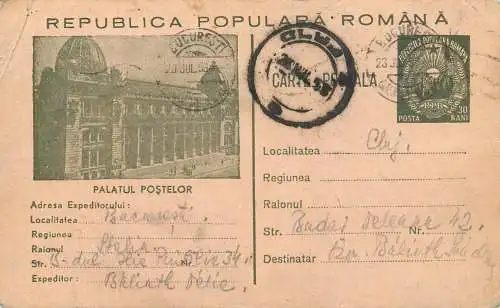 REPUBLICA POPULARĂ ROMÂNĂ
BUCUREȘTI
20 JUL. 53
CLUJ
BUCUREȘTI
CARTE POȘTALA
REPUBLICA POPULARA ROMANA
POSTA 30 BANI
PALATUL POȘTELOR
Adresa Expeditorului:
Localitatea București
Regiunea
Raionul Stalin
Str. B-dul Ilie Pintilie 34
Expeditor: Bálinth
Localitatea Cluj.
Regiunea
Raionul
Str. Budai Deleanu Nr. 42.
Destinatar Bálinth